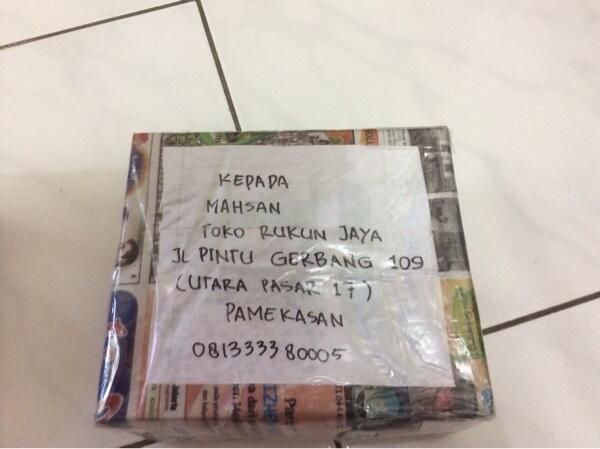 KEPADA
MAHSAN
TOKO RUKUN JAYA
JL PINTU GERBANG 109
(UTARA PASAR 17)
PAMEKASAN
081333380005